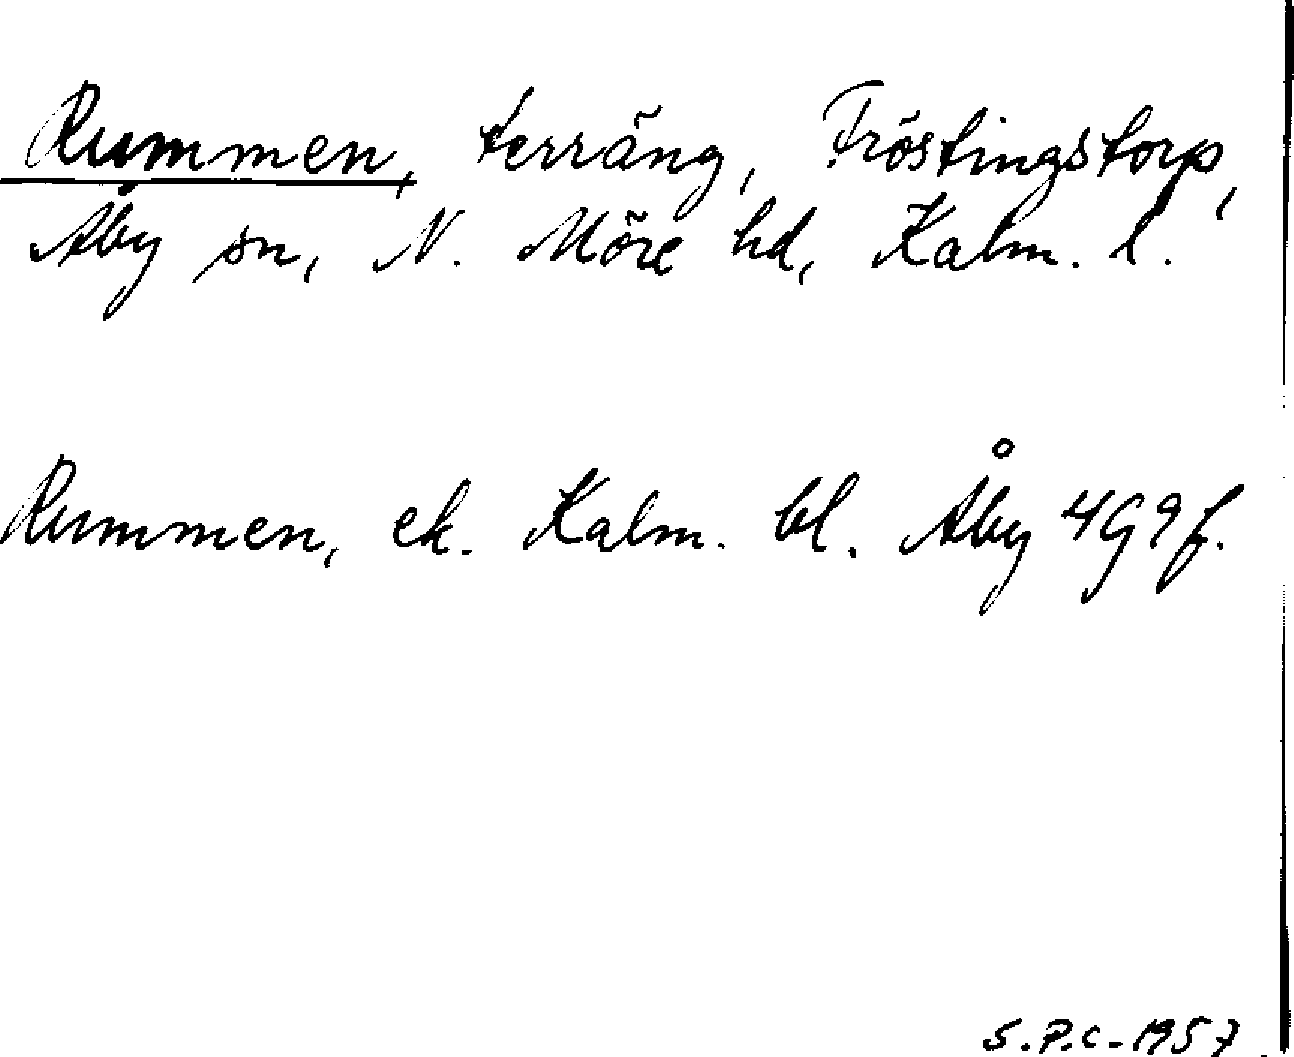 Rummen, terräng, Fröstingstorp,
Åby sn, N. Möre hd, Kalm. l.
Rummen, ek. Kalm. bl. Åby 4G9f.
S.P.C. 1957